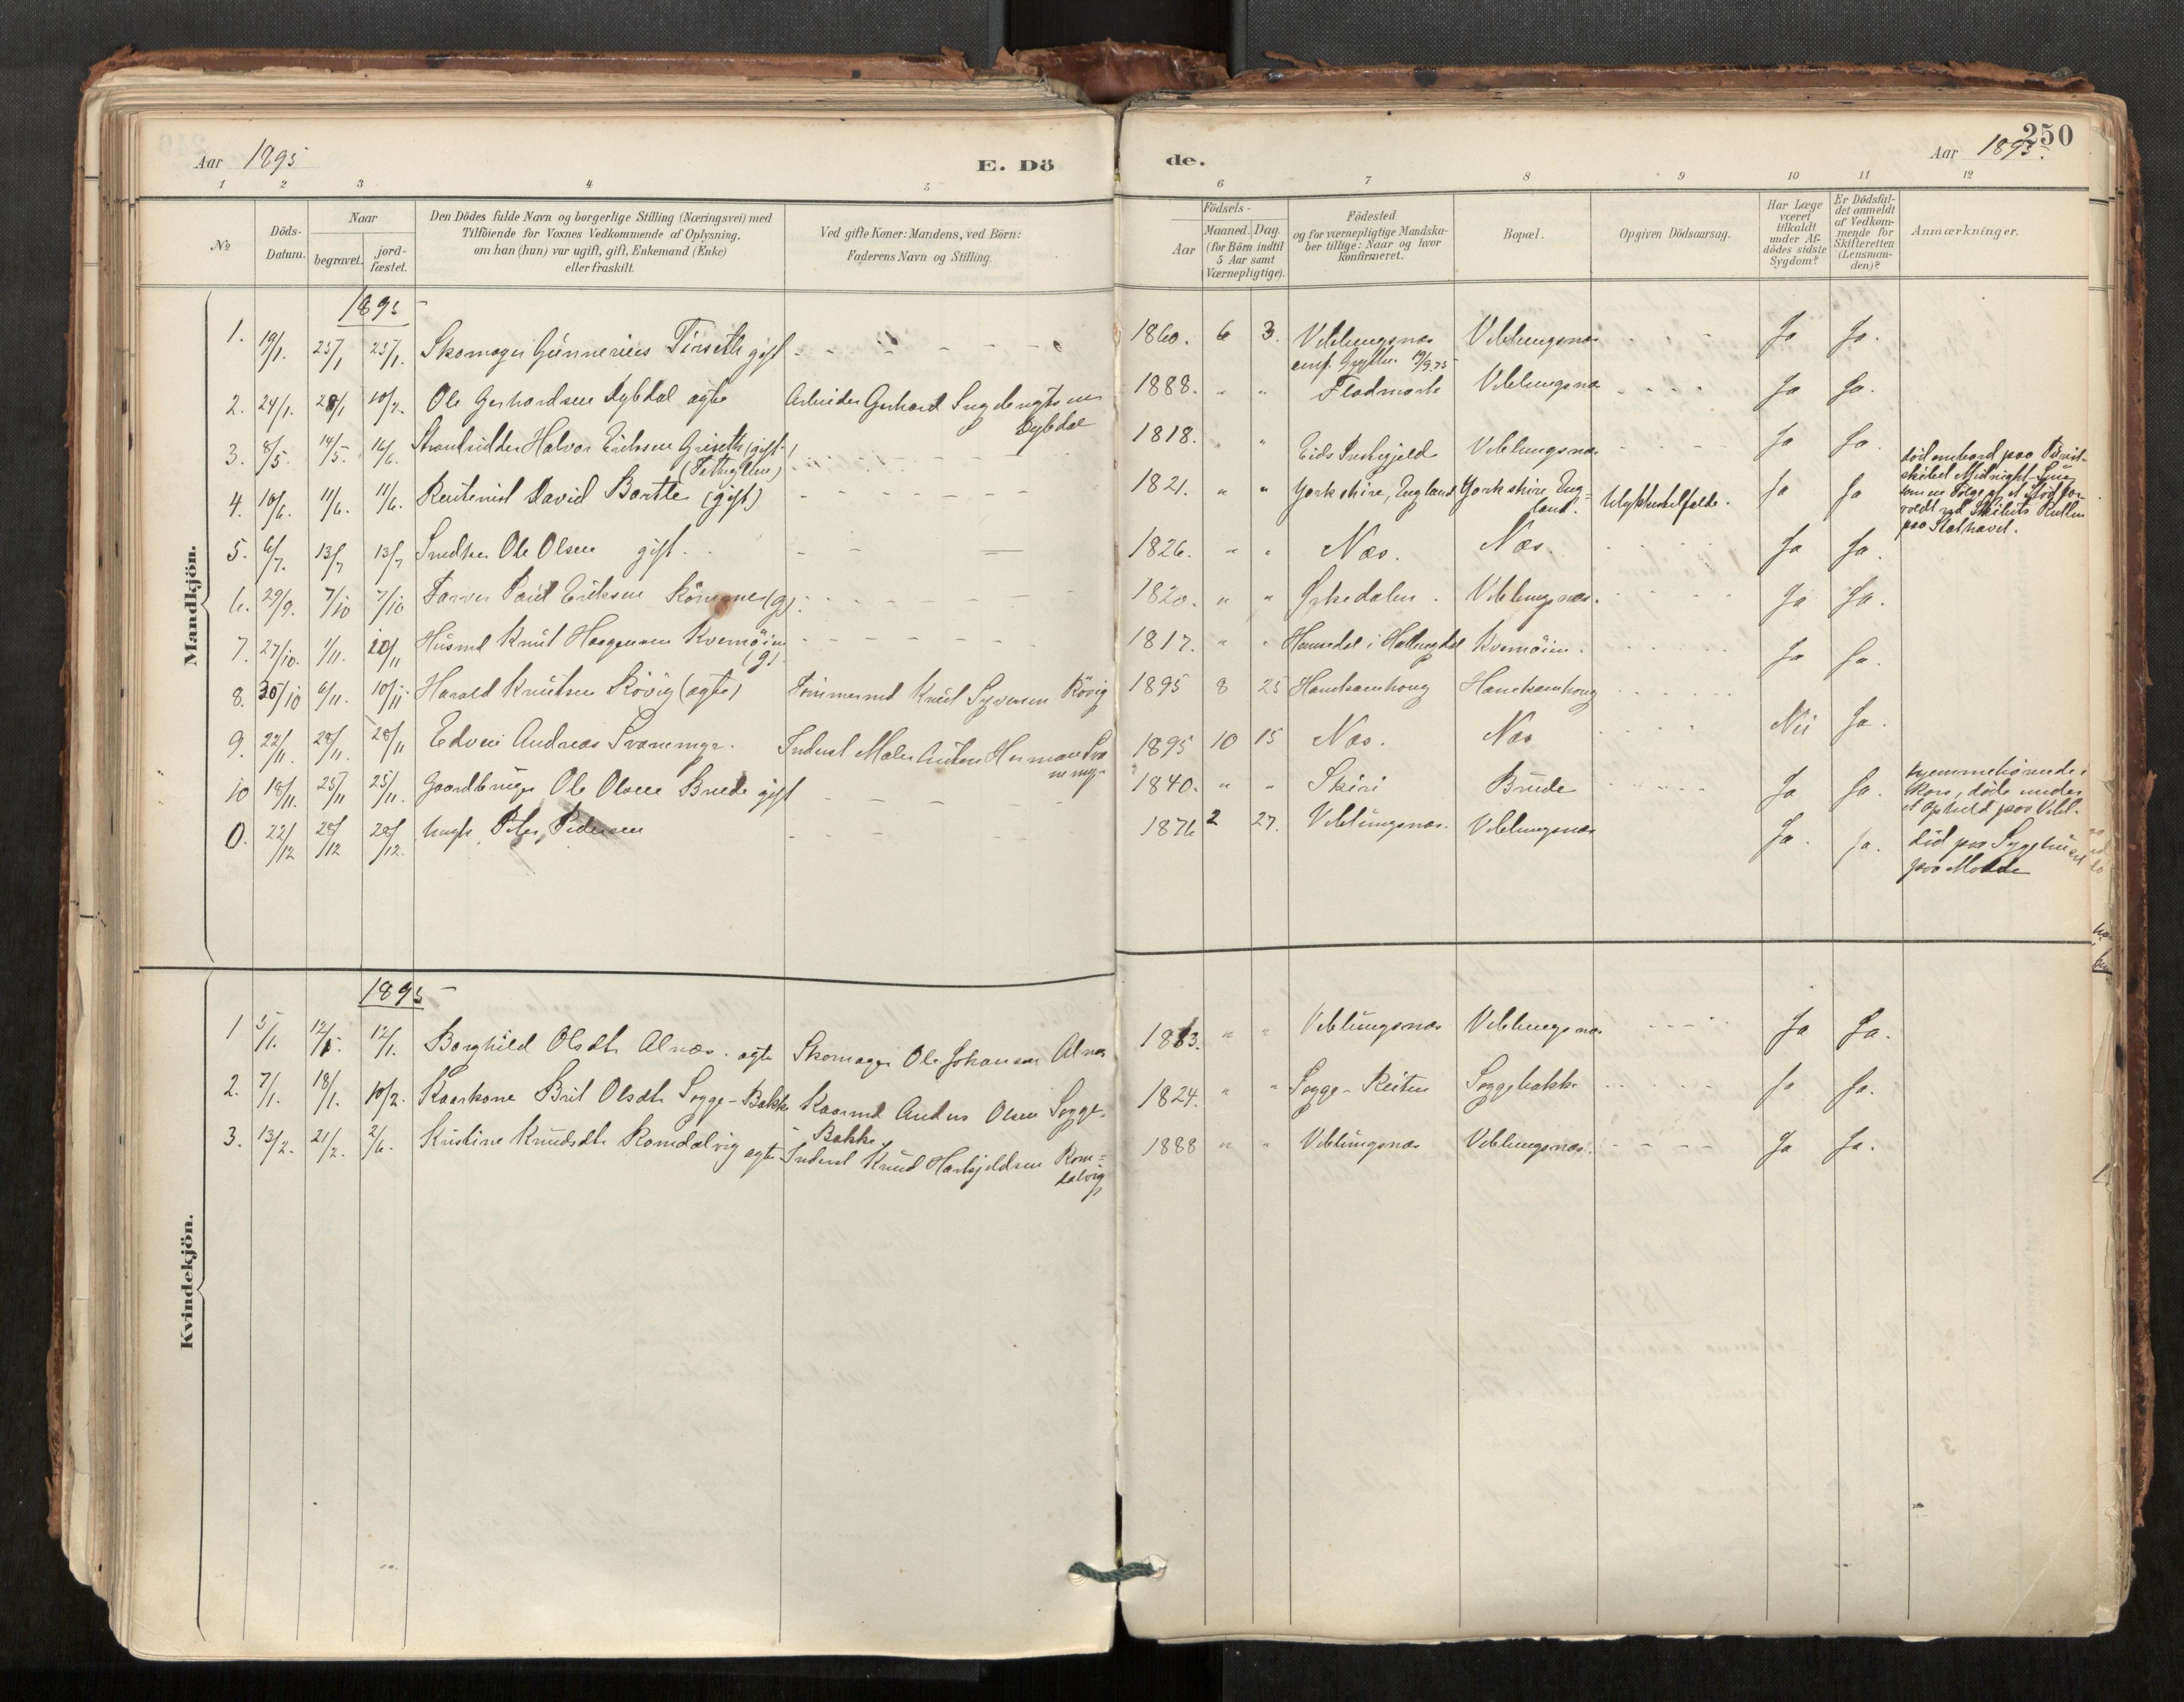 250
Aar 1895
E. Dö
de.
Aar 1895.
1 2 3 4 5 6 7 8 9 10 11 12
No
Döds-
Datum.
Naar
begravet.
jord-
fæstet.
Den Dödes fulde Navn og borgerlige Stilling (Næringsvei) med
Tilföiende for Voxnes Vedkommende af Oplysning,
om han (hun) var ugift, gift, Enkemand (Enke)
eller fraskilt.
Ved gifte Koner: Mandens, ved Börn:
Faderens Navn og Stilling.
Födsels-
Aar
Maaned. Dag.
(for Börn indtil
5 Aar samt
Værnepligtige).
Födested
og for værnepligtige Mandska-
ber tillige: Naar og hvor
konfirmeret.
Bopæl.
Opgiven Dödsaarsag.
Har Læge
været
tilkaldt
under Af-
dödes sidste
Sygdom?
Er Dödsfal-
det anmeldt
af Vedkom-
mende for
Skifteretten
(Lensman-
den)?
Anmærkninger.
Mandkjön.
1895
1. 19/1. 25/1 25/1. Skomager Gunnerius Tirseth gift - 1860. 6 3. Veblungsnæs Veblungsnæs Ja Ja.
conf. Grytten 19/9.75
2. 24/1. 28/1 10/2. Ole Gerhardsen Dybdal ægte Arbeider Gerhard 1888. " " Fladmark Veblungsnæs Ja Ja.
Dybdal
3. 8/5. 14/5. 16/6. Strandsidder Halvor Eriksen Griseth (gift) 1818. " " Eids Veblungsnæs Ja Ja.
4. 10/6. 11/6. 11/6. Rentenist David Bartle (gift) 1821. " " Yorkshire, England Yorkshire, Eng=
land. Ulykkestilfælde. Ja Ja
död ombord paa Turist-
skibet Midnight-Sun
som en Fölge af et Stöd for-
voldt ved Skibets Rullen
paa Stathavet.
5. 6/7. 13/7 13/7 Snedker Ole Olsen gift. 1826. " " Næs. Næs. Ja Ja.
6. 29/9. 7/10 7/10 Farver Poul Eriksen (g). 1820. " " Ørkedalen. Veblungsnæs. Ja Ja.
7. 27/10. 1/11. 10/11 Husmd Knut Haagensen Kvernöien
(g). 1817. " " Hemsedal i Hallingdal Kvernöien. Ja Ja.
8. 30/10 6/11. 10/11 Harald Knutsen Rövig (ægte) Tömmermd Knut Syversen Rövig 1895 8 25 Hanekamhoug Hanekamhoug
9. 22/11. 28/11. 28/11 Edvin Andreas Svanemyr. Inderst Maler Anton Herman Sva
nemyr 1895 10 15 Næs. Næs Nei Ja.
10 18/11. 25/11 25/11. Gaardbruger Ole Olsen Brude gift 1840. " " Skiri Brude Ja Ja.
hjemmehörende i
Kors, döde under
et Ophold paa Vebl.
0. 22/12 28/12 28/12. Ungk. Peter Pedersen 1876 2 27. Veblungsnæs. Veblungsnæs Ja. Ja.
död paa Sygehuset
paa Molde
Kvindekjön.
1895
1 5/1. 12/1. 12/1. Borghild Olsdtr Alnæs. ægte Skomager Ole Johansen Alnæs 1883. " " Veblungsnæs Veblungsnæs Ja Ja.
2. 7/1. 18/1. 10/2. Kaarkone Brit Olsdtr Sogge-Bakke Kaarmd Anders Olsen Sogge-
Bakke 1824. " " Sogge-Reiten Soggebakke Ja Ja.
3. 13/2. 21/2. 2/6. Kristine Knudsdtr Romdalvig ægte Inderst Knud Rom=
dalvig 1888 " " Veblungsnæs Veblungsnæs. Ja Ja.